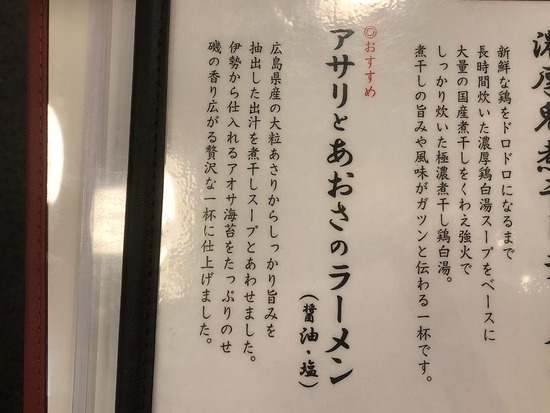 濃厚
新鮮な鶏をドロドロになるまで
長時間炊いた濃厚鶏白湯スープをベースに
大量の国産煮干しをくわえ強火で
しっかり炊いた極濃煮干し鶏白湯。
煮干しの旨みや風味がガツンと伝わる一杯です。
◎おすすめ
アサリとあおさのラーメン
(醤油・塩)
広島県産の大粒あさりからしっかり旨みを
抽出した出汁を煮干しスープとあわせました。
伊勢から仕入れるアオサ海苔をたっぷりのせ
磯の香り広がる贅沢な一杯に仕上げました。